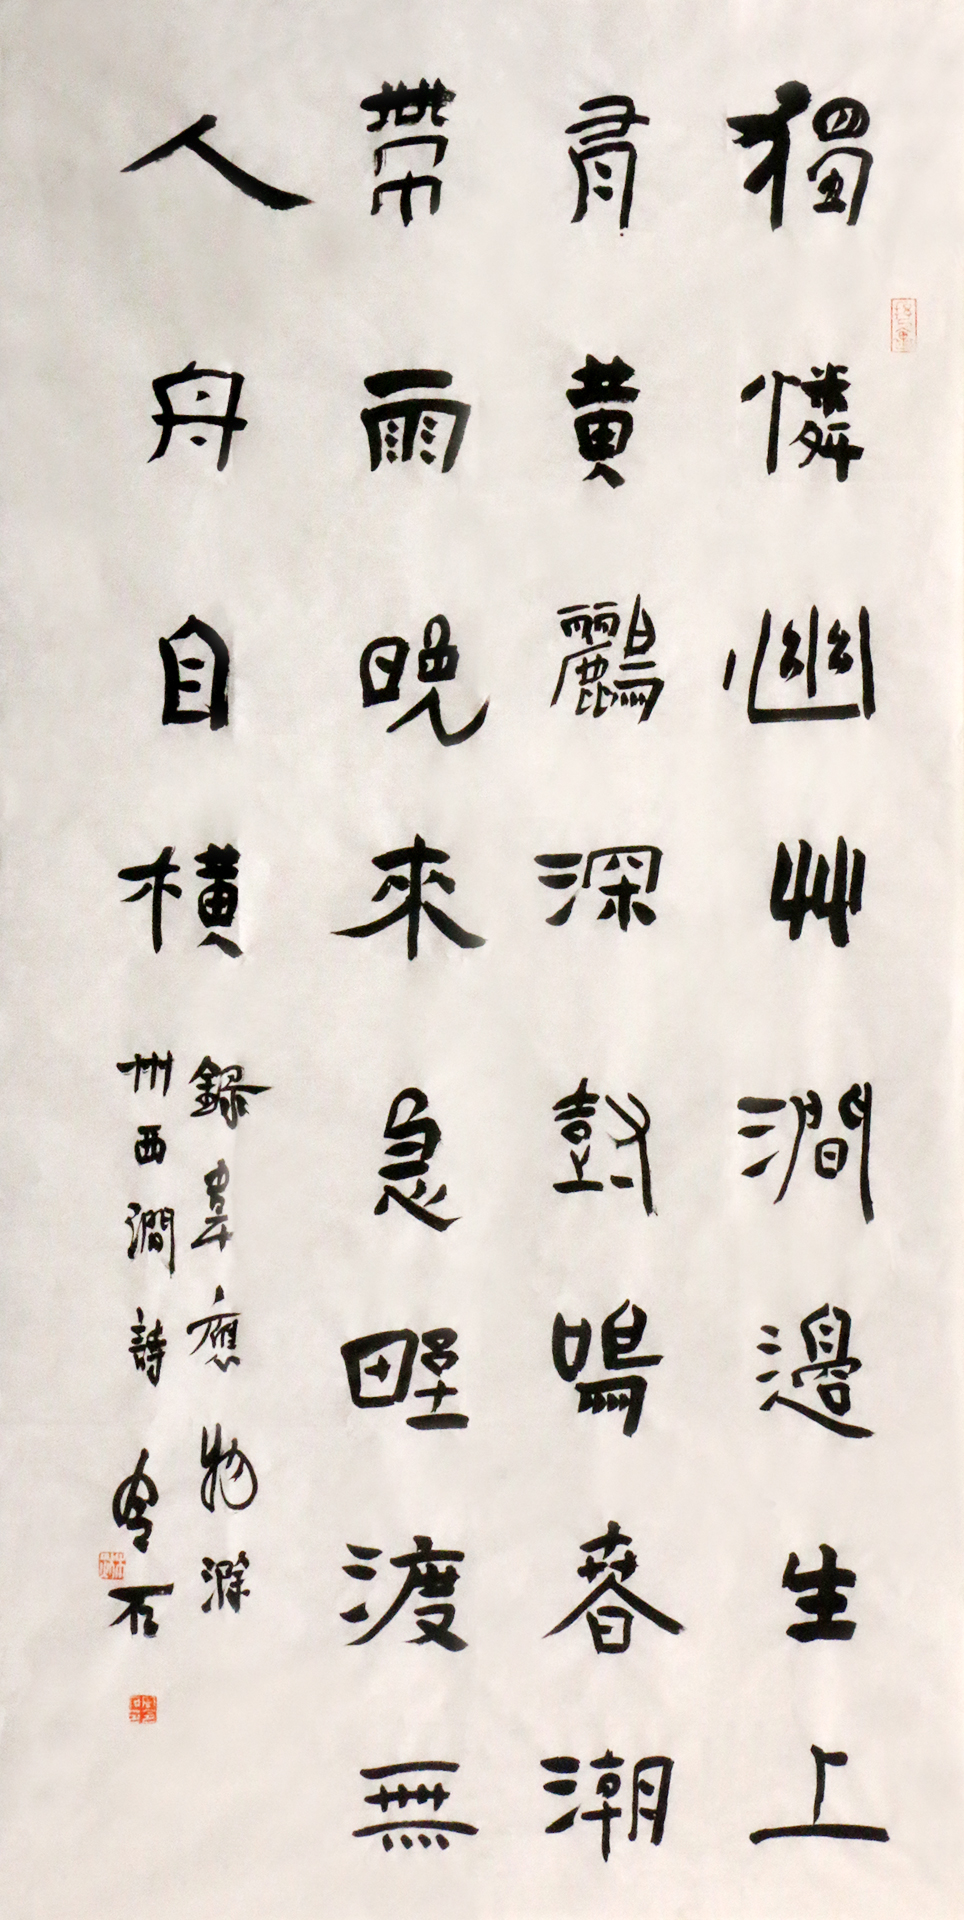 獨憐幽艸澗邊生上
有黄鸝深尌鳴春潮
帶雨晚來急野渡無
人舟自橫
錄韋應物滁
州西澗詩 石